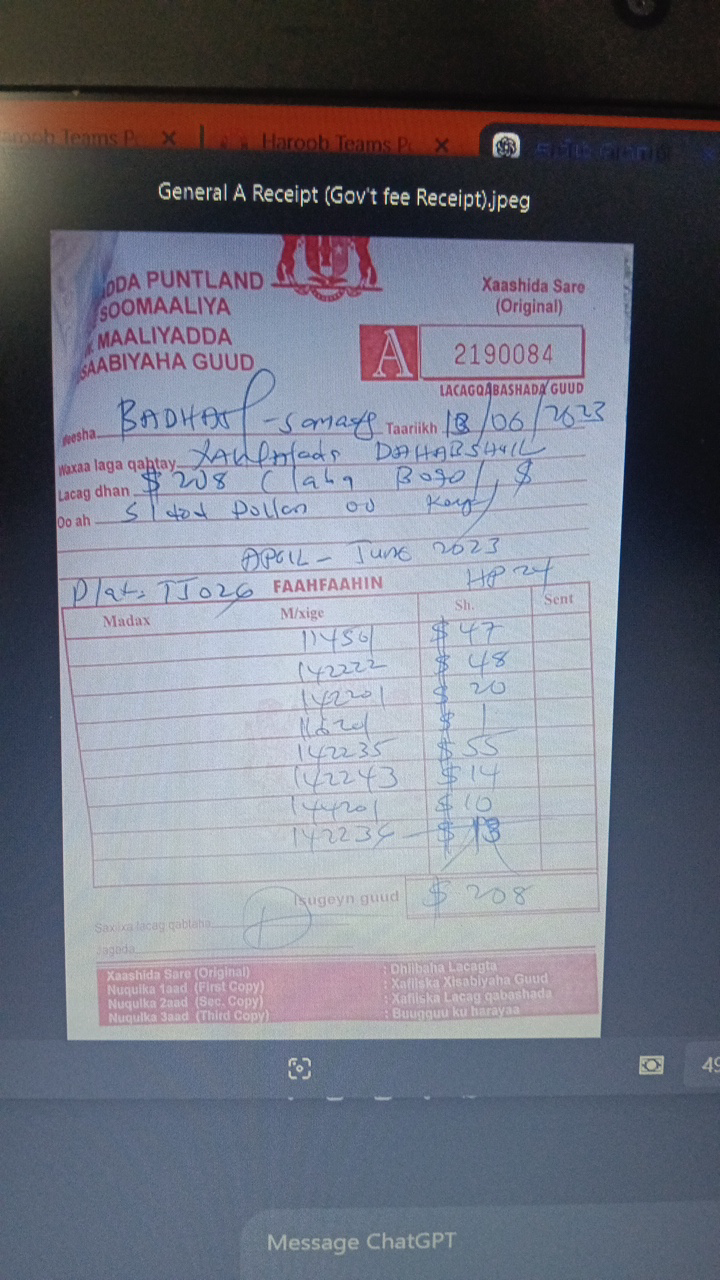 Haroob Teams P
Haroob Teams P
General A Receipt (Gov't fee Receipt).jpeg
DDA PUNTLAND
SOOMAALIYA
MAALIYADDA
SAABIYAHA GUUD
Xaashida Sare
(Original)
A
2190084
LACAGQABASHADA GUUD
eesha BADHAN - Taariikh 18/06/2023
Waxaa laga qabtay DAHABSHIIL
Lacag dhan $ 208 ( laba Boqol $
Oo ah
APRIL - JUNE 2023
Plat: TJ026 FAAHFAAHIN HP 24
Madax M/xige Sh. Sent
$ 47
142222 $ 48
142201 $ 20
$ 1
142235 $ 55
142243 $ 14
144201 $ 10
$ 13
Isugeyn guud $ 208
Saxiixa lacag qabtaha
Jagada
Xaashida Sare (Original) : Dhiibaha Lacagta
Nuqulka 1aad (First Copy) : Xafiiska Xisabiyaha Guud
Nuqulka 2aad (Sec. Copy) : Xafiiska Lacag qabashada
Nuqulka 3aad (Third Copy) : Buugguu ku harayaa
49
Message ChatGPT